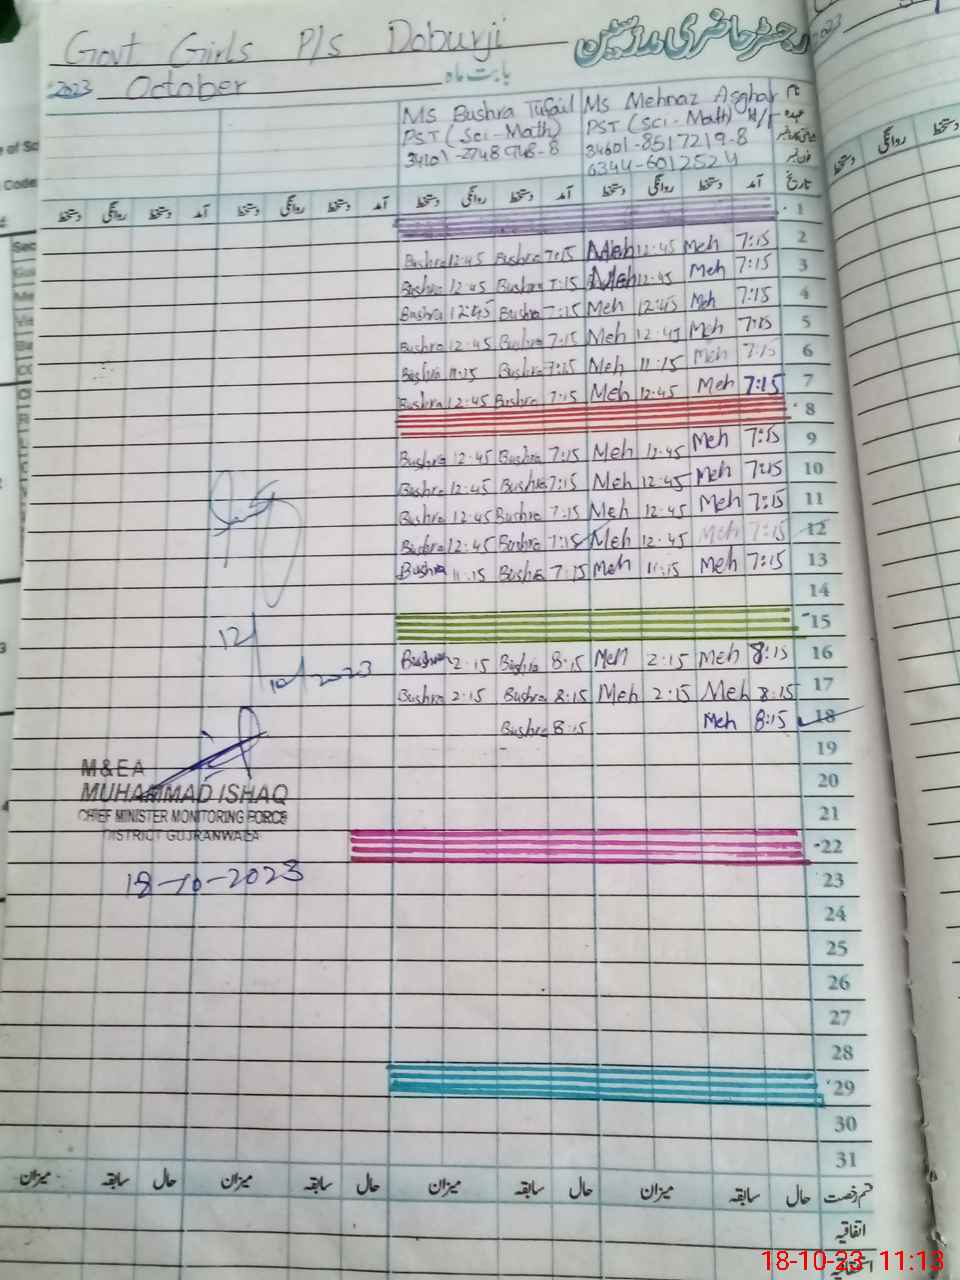 Govt Girls P/s Doburji رجسٹر حاضری مدرسین
2023 October بابت ماہ
Ms Bushra Tufail Ms Mehnaz Asghar H/T نام
PST (Sci-Math) PST (Sci-Math) عہدہ
34601-8517219-8
0344-6012524 فون نمبر
دستخط روانگی دستخط آمد دستخط روانگی دستخط آمد دستخط روانگی دستخط آمد دستخط روانگی دستخط آمد تاریخ
1
Bushra 12:45 Bushra 7:15 Meh 12:45 Meh 7:15 2
Bushra 12:45 Bushra 7:15 Meh 12:45 Meh 7:15 3
Bushra 12:45 Bushra 7:15 Meh 12:45 Meh 7:15 4
Bushra 12:45 Bushra 7:15 Meh 12:45 Meh 7:15 5
Bushra 11:15 Bushra 7:15 Meh 11:15 Meh 7:15 6
Bushra 12:45 Bushra 7:15 Meh 12:45 Meh 7:15 7
8
Bushra 12:45 Bushra 7:15 Meh 12:45 Meh 7:15 9
Bushra 12:45 Bushra 7:15 Meh 12:45 Meh 7:15 10
Bushra 12:45 Bushra 7:15 Meh 12:45 Meh 7:15 11
Bushra 12:45 Bushra 7:15 Meh 12:45 Meh 7:15 12
Bushra 11:15 Bushra 7:15 Meh 11:15 Meh 7:15 13
14
15
12/10/2023
Bushra 2:15 Bushra 8:15 Meh 2:15 Meh 8:15 16
Bushra 2:15 Bushra 8:15 Meh 2:15 Meh 8:15 17
Bushra 8:15 Meh 8:15 18
19
20
21
22
M&EA
MUHAMMAD ISHAQ
CHIEF MINISTER MONITORING FORCE
DISTRICT GUJRANWALA
18-10-2023
23
24
25
26
27
28
29
30
31
میزان سابقہ حال میزان سابقہ حال میزان سابقہ حال میزان سابقہ حال قسم رخصت
اتفاقیہ
18-10-23 11:13